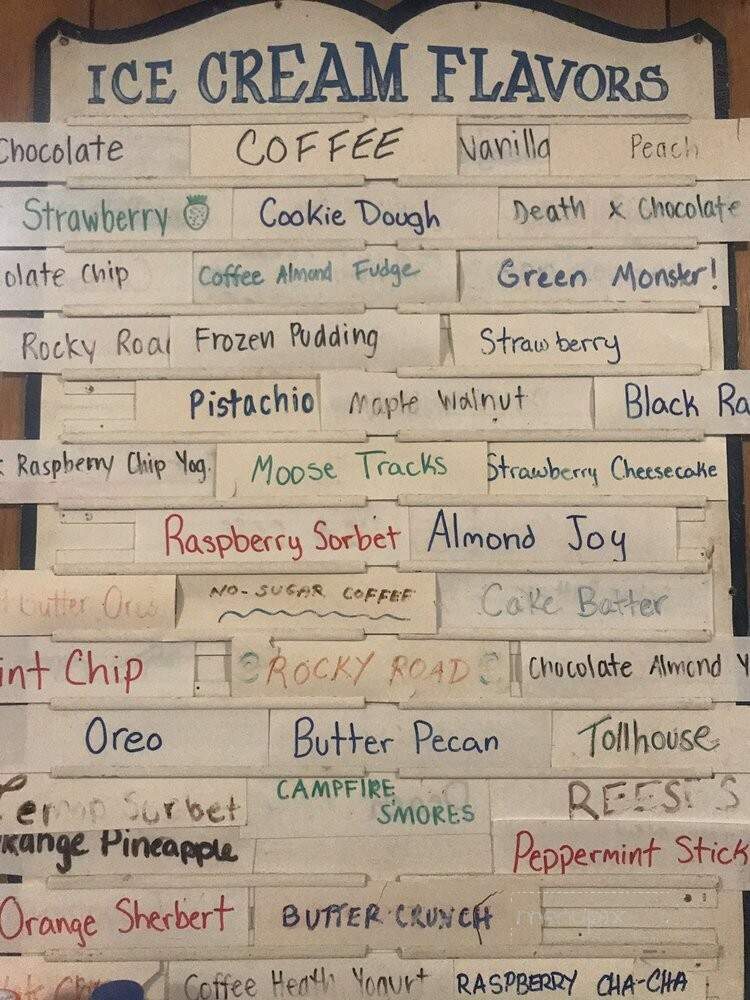 ICE CREAM FLAVORS
Chocolate COFFEE Vanilla Peach
Strawberry Cookie Dough Death x Chocolate
olate Chip Coffee Almond Fudge Green Monster!
Rocky Roa Frozen Pudding Strawberry
Pistachio Maple Walnut Black Ra
Raspberry Chip Yog. Moose Tracks Strawberry Cheesecake
Raspberry Sorbet Almond Joy
Butter Oreo NO-SUGAR COFFEE Cake Batter
int Chip ROCKY ROAD Chocolate Almond Y
Oreo Butter Pecan Tollhouse
CAMPFIRE
Sorbet S'MORES REESE'S
range Pineapple Peppermint Stick
Orange Sherbert BUTTER CRUNCH
Coffee Heath Yogurt RASPBERRY CHA-CHA